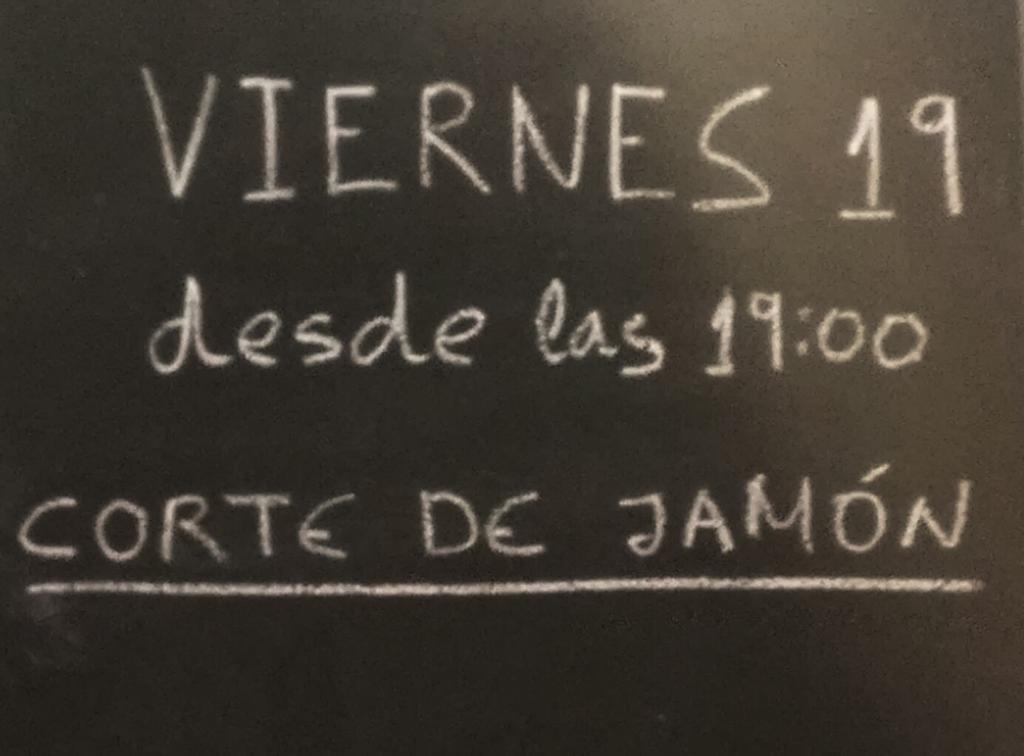 VIERNES 19
desde las 19:00
CORTE DE JAMÓN